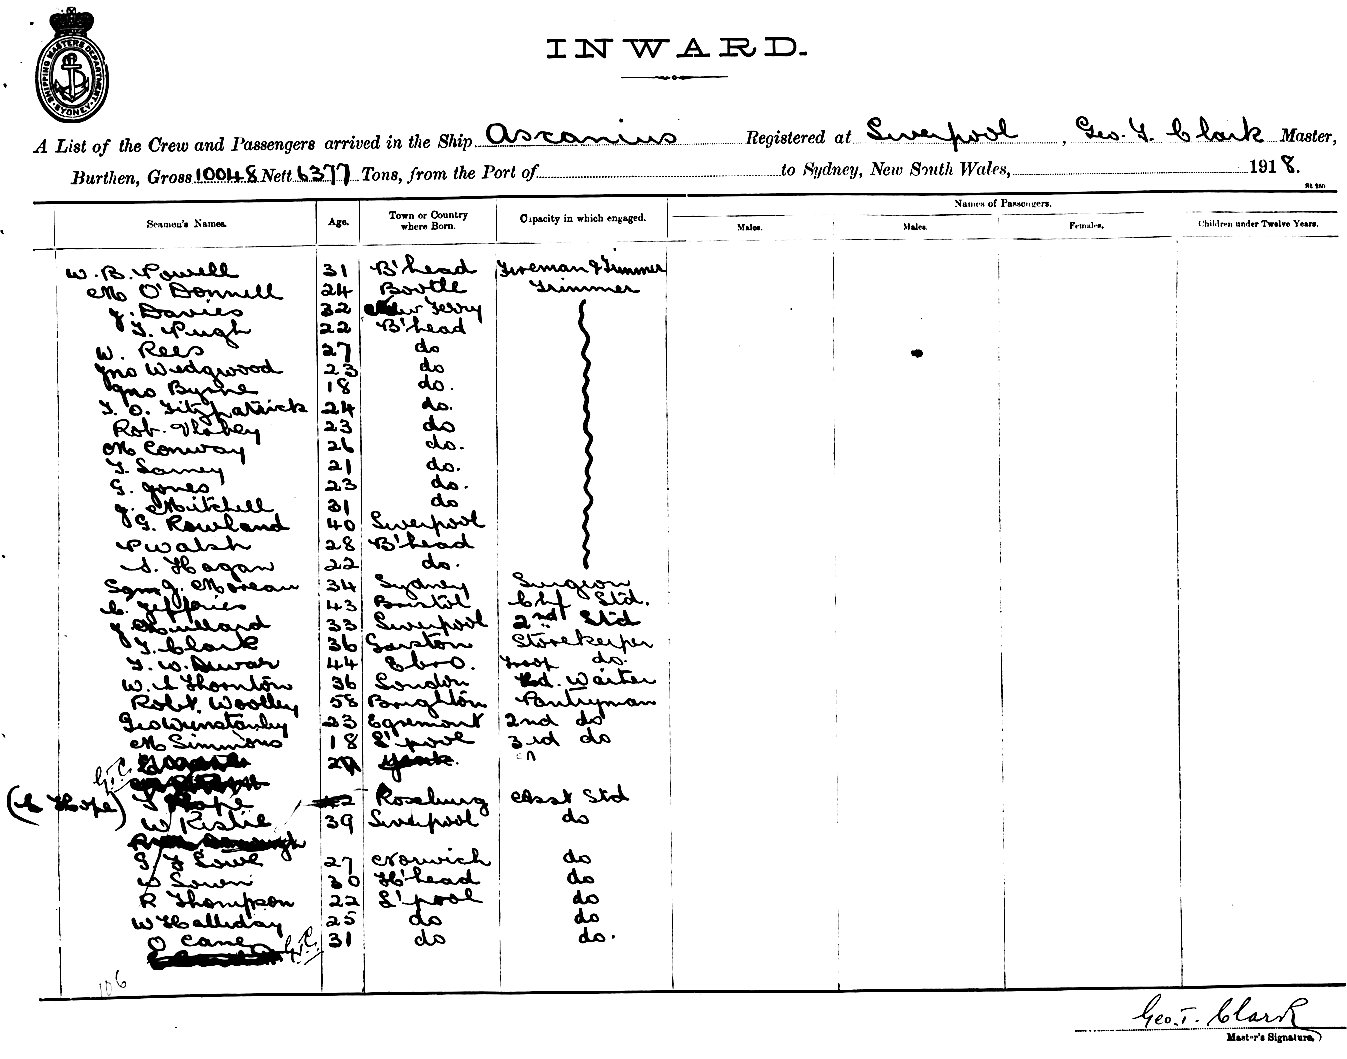 SHIPPING MASTERS DEPARTMENT SYDNEY
INWARD.
A List of the Crew and Passengers arrived in the Ship Ascanius Registered at Liverpool, Geo. T. Clark Master,
Burthen, Gross 10048 Nett 6377 Tons, from the Port of to Sydney, New South Wales, 1918.
Names of Passengers.
Seamen's Names. Age. Town or Country where Born. Capacity in which engaged. Males. Males. Females. Children under Twelve Years.
W. B. Powell 31 B'head Fireman & Trimmer
M O'Donnell 24 Bootle Trimmer
J. Davies 32 New Ferry
T. Pugh 22 B'head
W. Rees 27 do
Jno Wedgwood 23 do
Jno Byrne 18 do.
T. O. Fitzpatrick 24 do.
Rob. 23 do
M Conway 26 do.
T. 21 do.
G. Jones 23 do.
J. Mitchell 31 do
G. Rowland 40 Liverpool
P Walsh 28 B'head
S. Hagan 22 do.
J. Moreau 34 Sydney Surgeon
C. Jefferies 43 Bristol Chf Std.
J 33 Liverpool 2nd Std
T. Clark 36 Garston Storekeeper
T. W. Dewar 44 Troop do.
W. S Thornton 36 London Hd. Waiter
Robt. Woolley 58 Brighton Pantryman
Geo Winstanley 23 Egremont 2nd do
M Simmons 18 L'pool 3rd do
G.T.C.
(C Hope) Hope Roseburg Asst Std
W Ristie 39 Liverpool do
S F Lowe 27 Norwich do
30 H'head do
R Thompson 22 L'pool do
W Halliday 25 do do
O Cane 31 do do.
G.T.C.
106
Geo. T. Clark
Master's Signature.